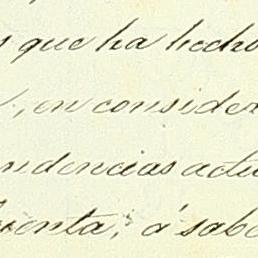 s que ha hecho
, en consider
ndencias actu
uenta, á sabe